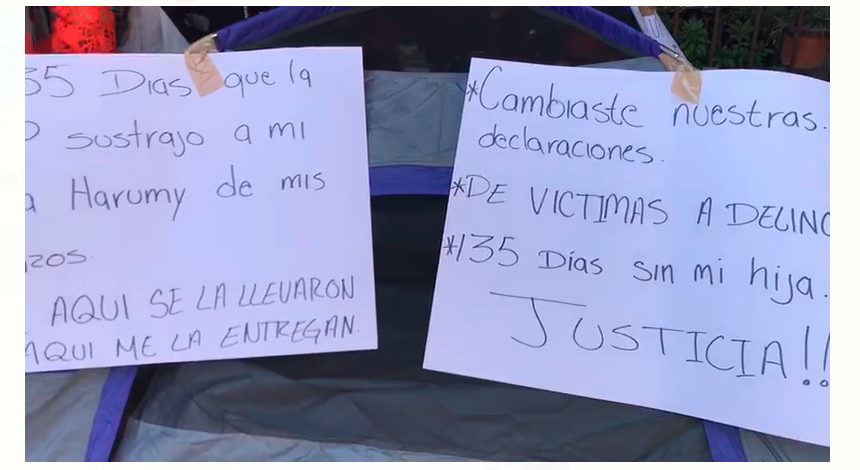 35 Días que la
sustrajo a mi
Harumy de mis
zos
AQUI SE LA LLEVARON
AQUI ME LA ENTREGAN
*Cambiaste nuestras.
declaraciones.
*DE VICTIMAS A DELINC
*135 Días sin mi hija.
JUSTICIA!!